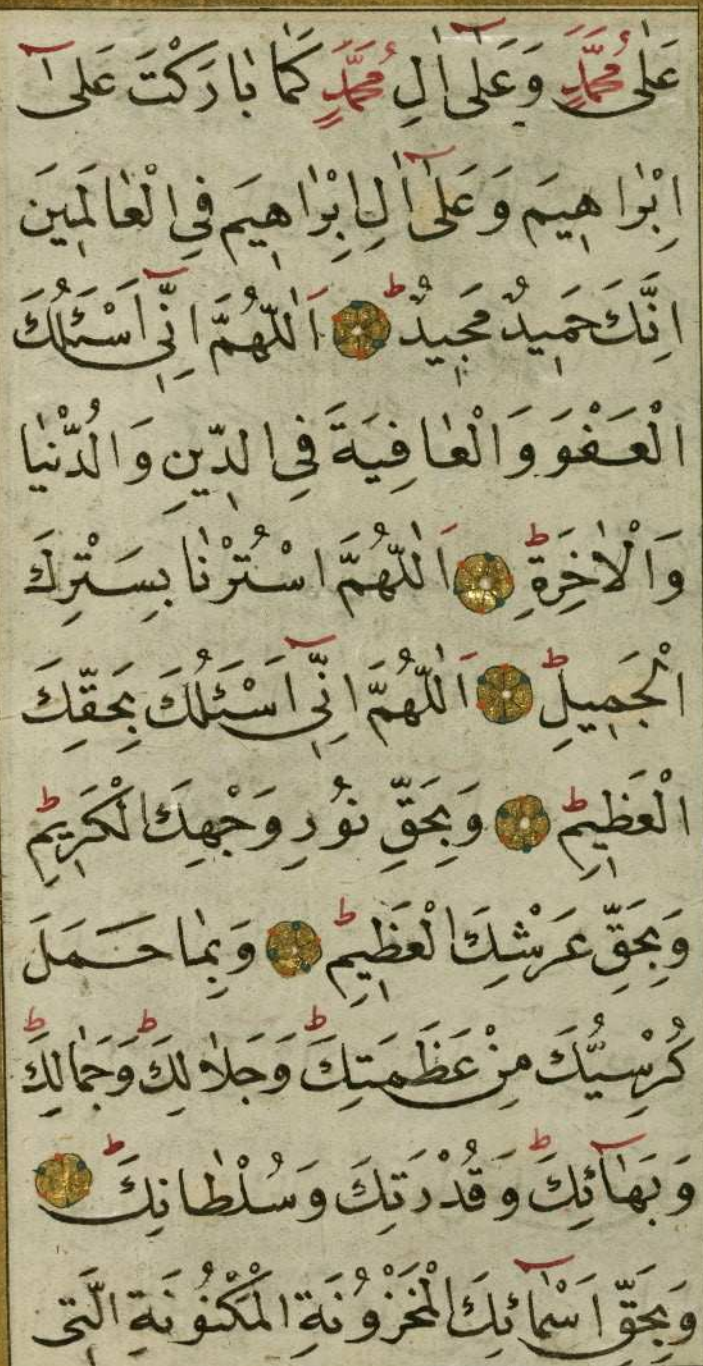 عَلٰى مُحَمَّدٍ وَعَلٰٓى اٰلِ مُحَمَّدٍ كَمَا بَارَكْتَ عَلٰٓى
اِبْرٰاهِيمَ وَعَلٰٓى اٰلِ اِبْرٰاهِيمَ فِى الْعٰالَمِينَ
اِنَّكَ حَمِيدٌ مَجِيدٌ ط اَللّٰهُمَّ اِنِّٓى اَسْئَلُكَ
الْعَفْوَ وَالْعٰافِيَةَ فِى الدِّينِ وَالدُّنْيٰا
وَالْاٰخِرَةِ ط اَللّٰهُمَّ اسْتُرْنٰا بِسَتْرِكَ
الْجَمِيلِ ط اَللّٰهُمَّ اِنِّٓى اَسْئَلُكَ بِحَقِّكَ
الْعَظِيمِ ط وَبِحَقِّ نُورِ وَجْهِكَ الْكَرِيمِ ط
وَبِحَقِّ عَرْشِكَ الْعَظِيمِ ط وَبِمٰا حَمَلَ
كُرْسِيُّكَ مِنْ عَظَمَتِكَ ط وَجَلٰالِكَ ط وَجَمٰالِكَ ط
وَبَهٰٓائِكَ ط وَقُدْرَتِكَ وَسُلْطٰانِكَ ط
وَبِحَقِّ اَسْمٰٓائِكَ الْمَخْزُونَةِ الْمَكْنُونَةِ الَّتِى